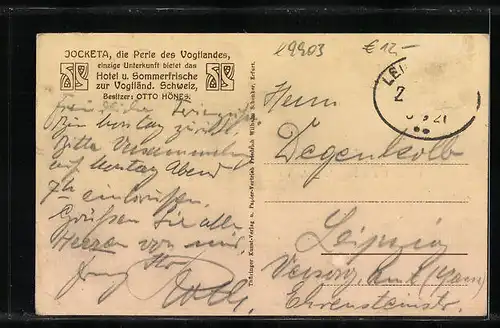 L9903
€12,-
JOCKETA, die Perle des Vogtlandes,
einzige Unterkunft bietet das
Hotel u. Sommerfrische
zur Vogtländ. Schweiz,
Besitzer: OTTO HÖNES.
Bin Montag zurück.
Bitte Versammlung
auf Montag Abend
7h einberufen.
Grüßen Sie alle
Herren von mir
Thüringer Kunst-Verlag u. Papier-Vertrieb Friedrich Wilhelm Schenker, Erfurt.
LEI
2
21
Herrn
Degenkolb
Leipzig
Ehrensteinstr.